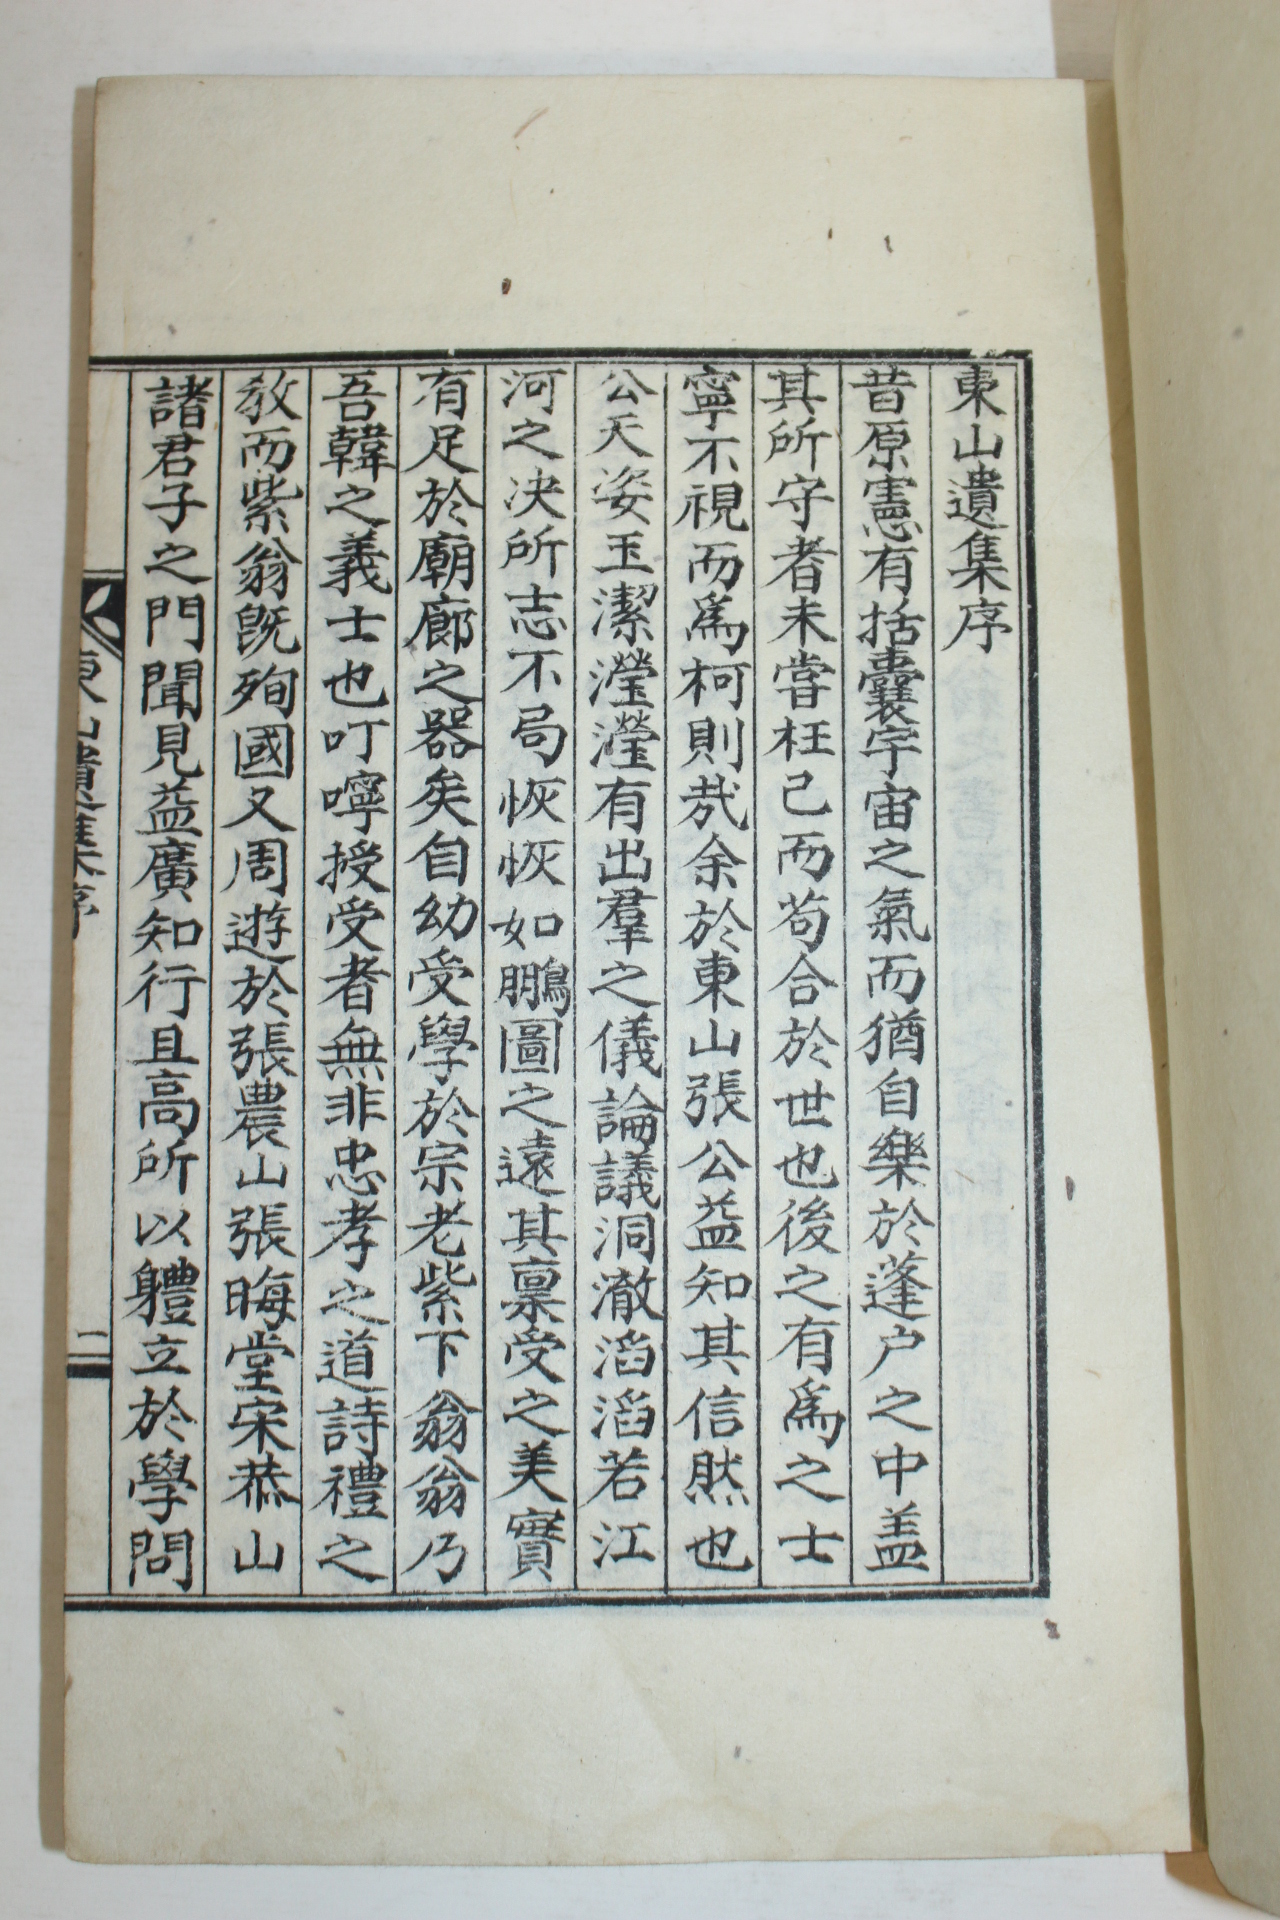 東山遺集序
昔原憲有括囊宇宙之氣而猶自樂於蓬户之中盖
其所守者未嘗枉己而苟合於世也後之有爲之士
寧不視而爲柯則㢤余於東山張公益知其信然也
公天姿玉潔瀅瀅有出羣之儀論議洞澈滔滔若江
河之决所志不局恢恢如鵬圖之遠其禀受之美實
有足於廟廊之器矣自幼受學於宗老紫下翁翁乃
吾韓之義士也叮嚀授受者無非忠孝之道詩禮之
敎而紫翁旣殉國又周遊於張農山張晦堂宋恭山
諸君子之門聞見益廣知行且高所以軆立於學問
東山遺集序
二